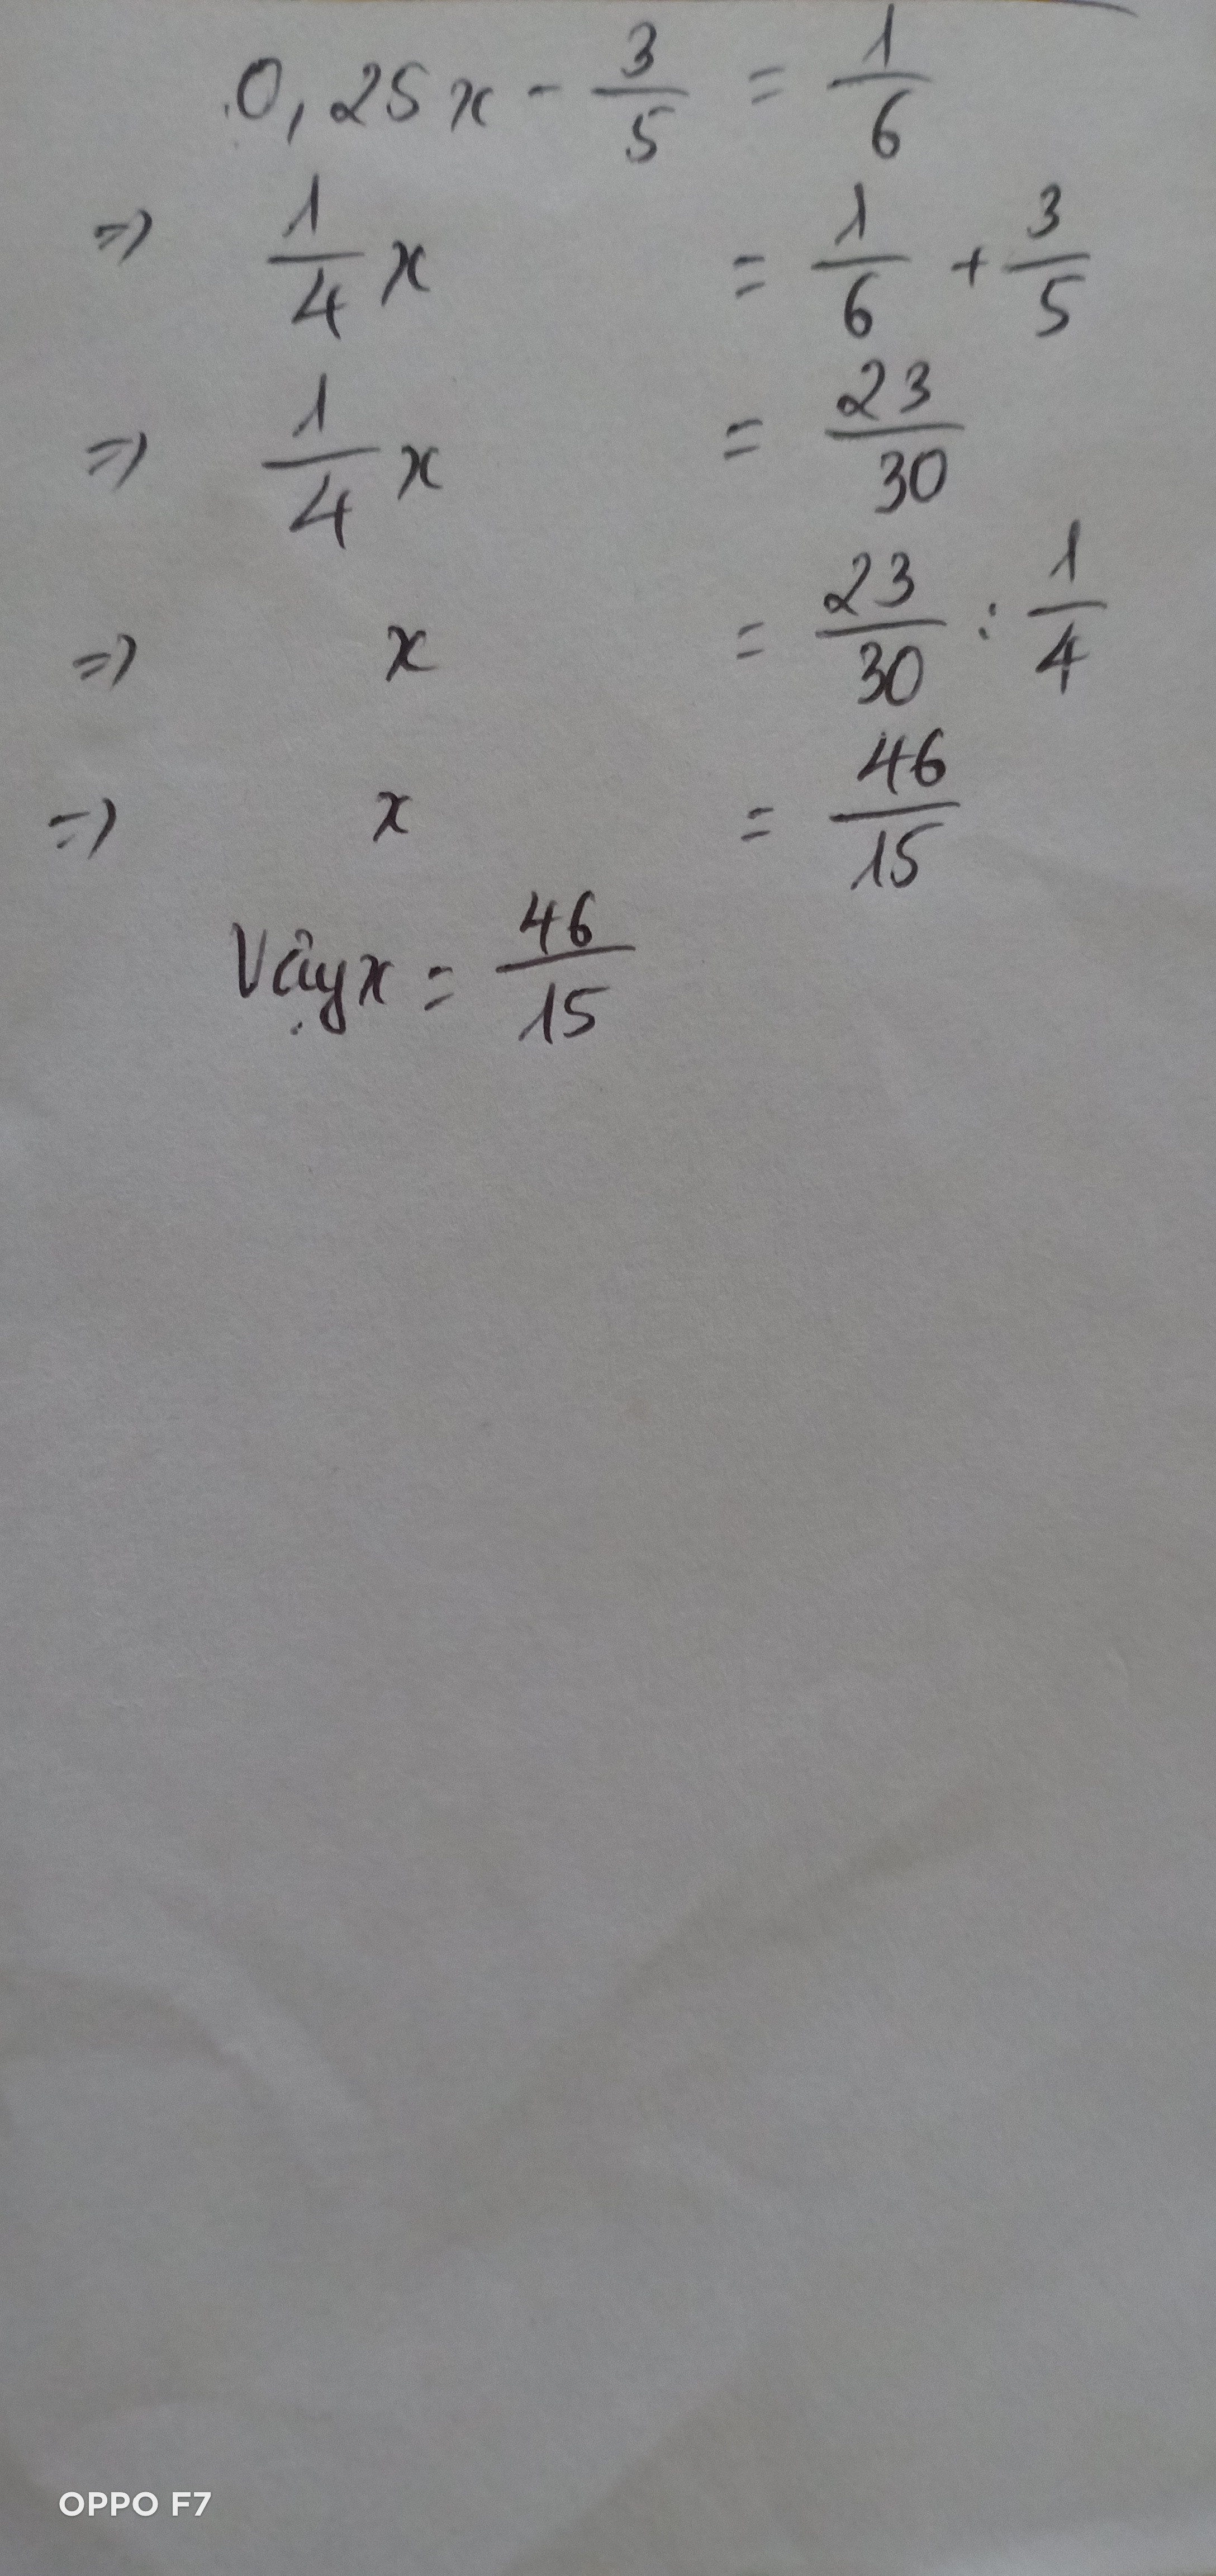 0,25x - 3/5 = 1/6
=> 1/4 x = 1/6 + 3/5
=> 1/4 x = 23/30
=> x = 23/30 : 1/4
=> x = 46/15
Vậy x = 46/15
OPPO F7